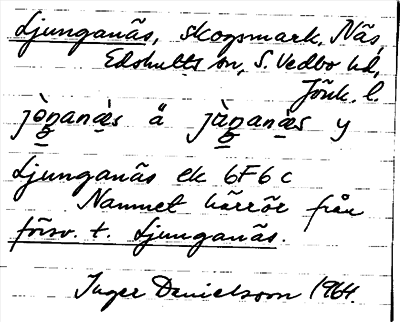 Ljunganäs, skogsmark, Näs,
Edshults sn, S. Vedbo hd,
Jönk. l.
jòŋanæ̀s ä jàŋanæ̀s y
Ljunganäs ek 6F6c
Namnet härrör från
försv. t. Ljunganäs.
Inger Danielsson 1964.